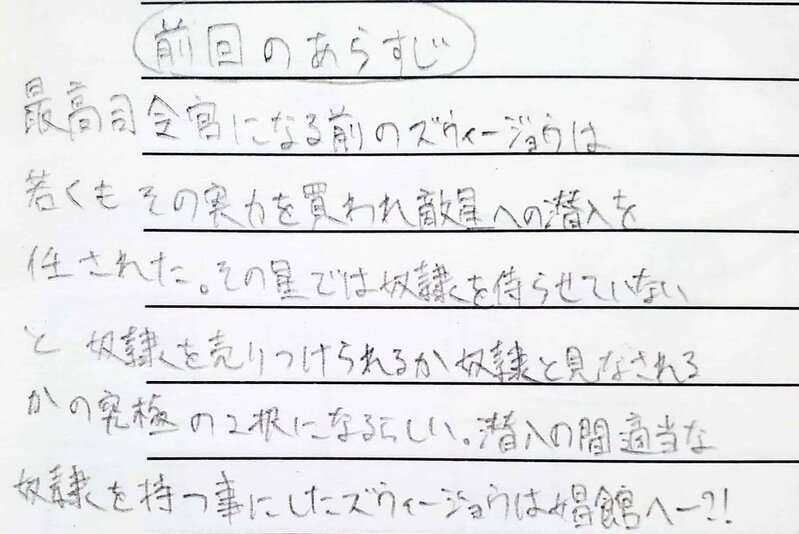 前回のあらすじ
最高司令官になる前のズウィージョウは
若くもその実力を買われ敵星への潜入を
任された。その星では奴隷を侍らせていない
と奴隷を売りつけられるか奴隷と見なされる
かの究極の2択になるらしい。潜入の間適当な
奴隷を持つ事にしたズウィージョウは娼館へー?!